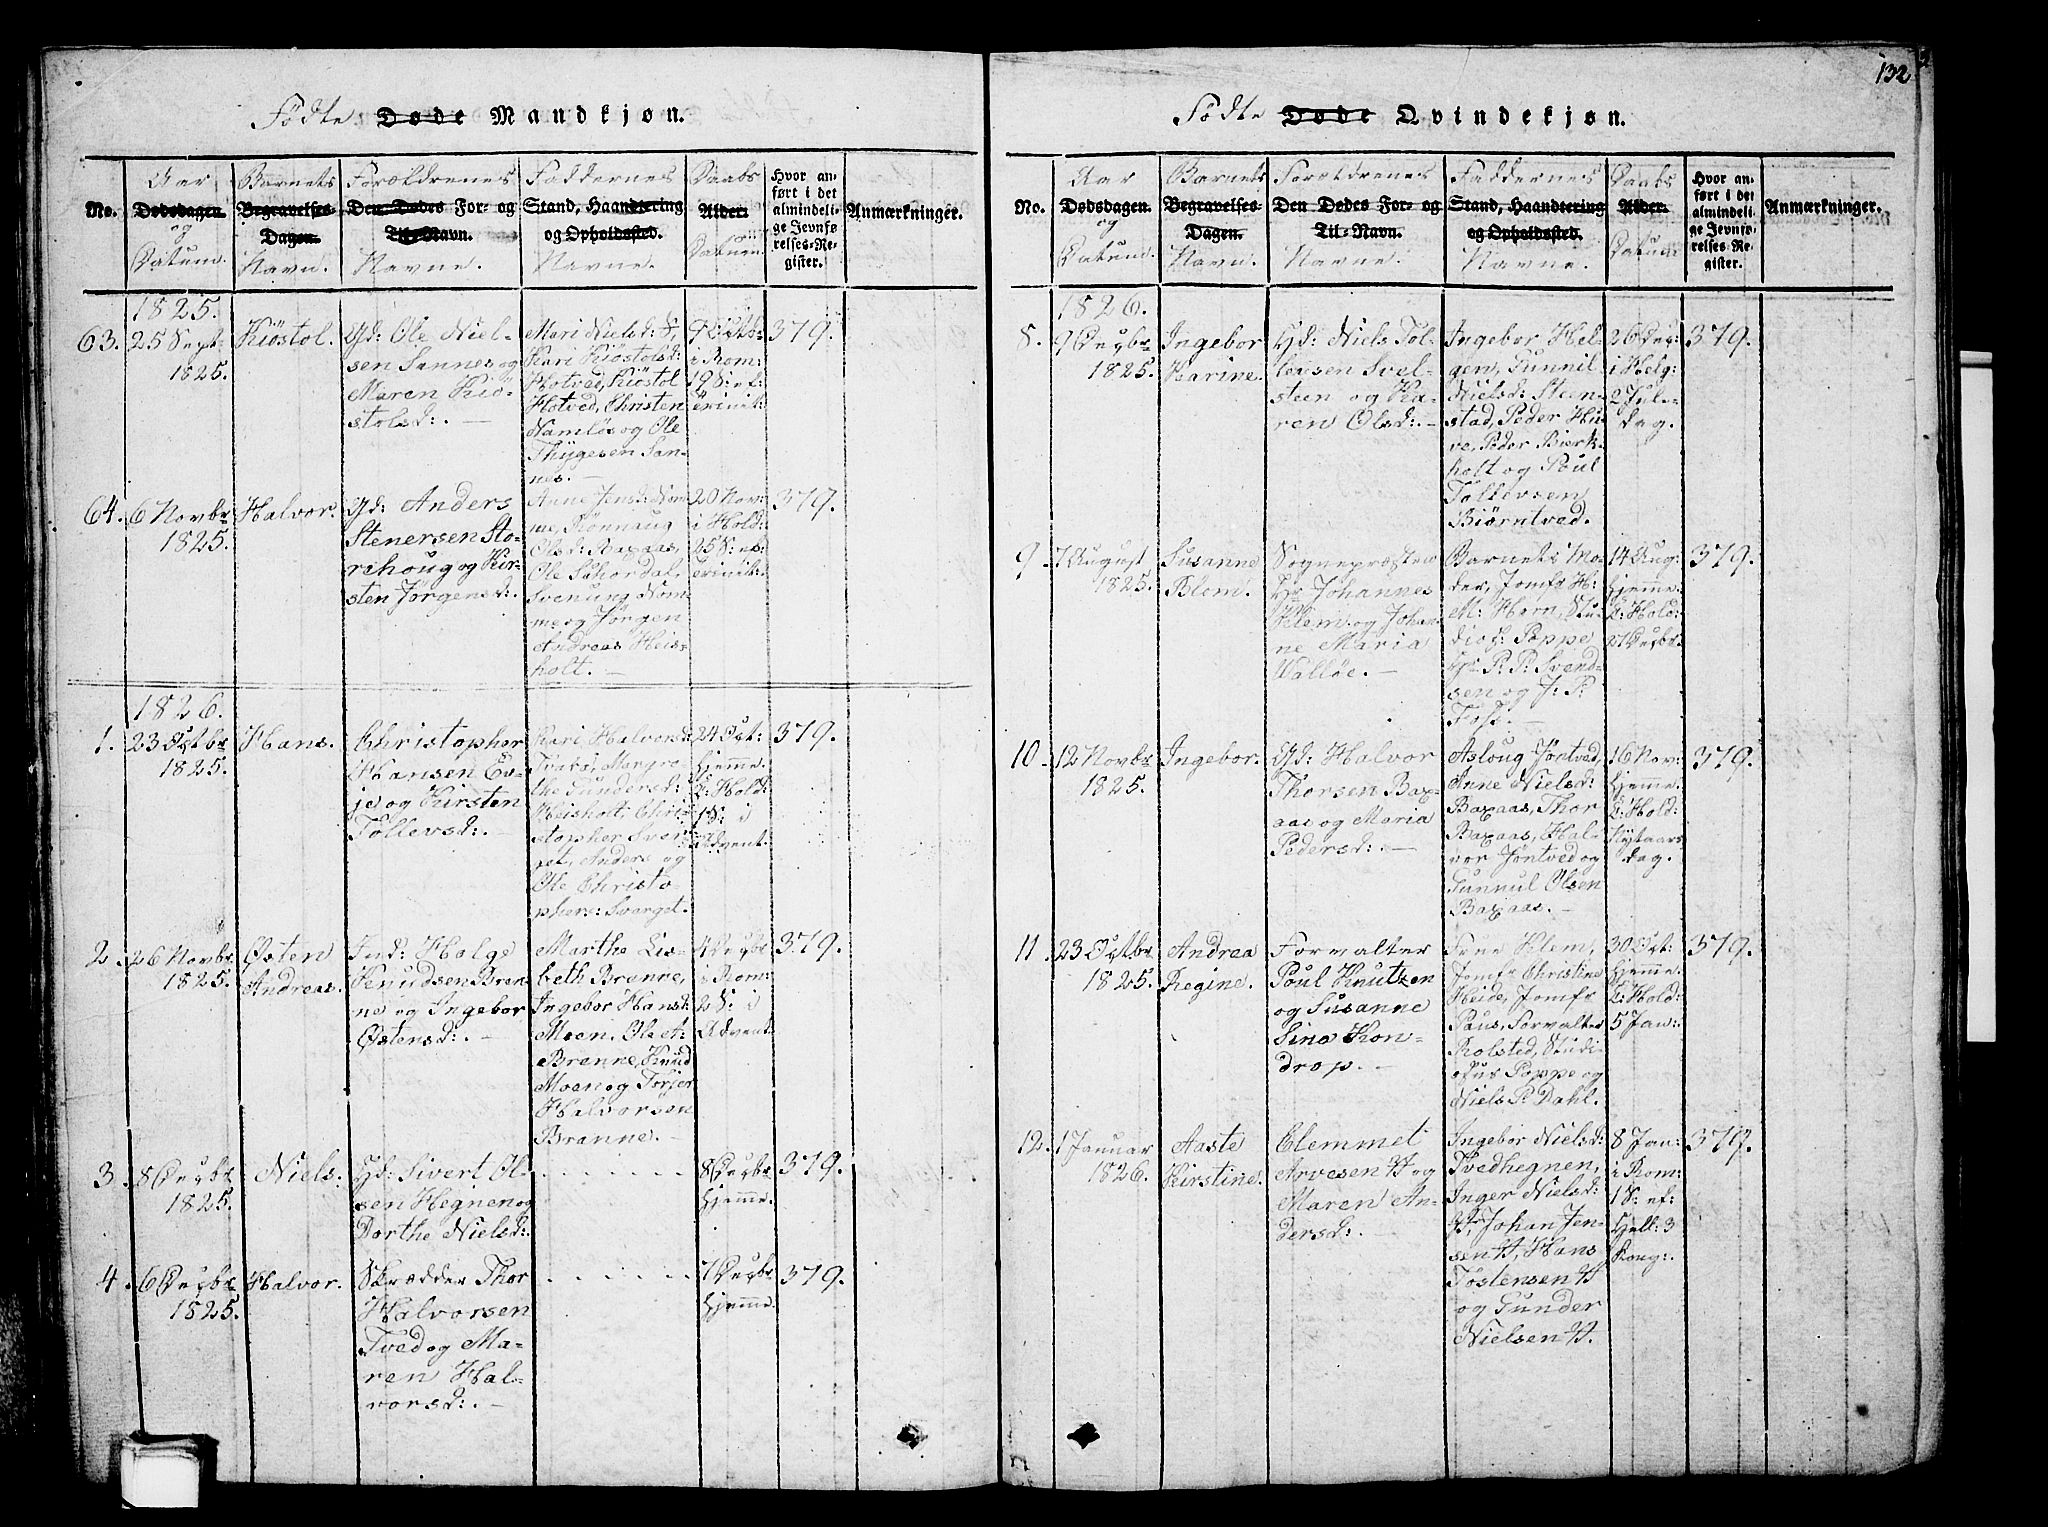 132
Födte Døde Mandkjøn.
No.
Aar
Dødsdagen.
og
Datum.
Barnets
Begravelses-
Dagen.
Navn.
Forældrenes
Den Dødes For- og
Til-Navn.
Navne.
Faddernes
Stand, Haandtering
og Opholdssted.
Navne.
Daabs
Alder.
Datum.
Hvor an-
ført i det
almindeli-
ge Jevnfø-
relses-Re-
gister.
Anmærkninger.
1825.
63.
25 Sept.
1825.
Kiöstol.
Gd: Ole Niel-
sen Sannes og
Maren Kiö-
stolsd:. —
Mari Nielsd: S,
Kari Kiöstolsd:
Hotved, Kiöstol
Hotved, Christen
Namlös og Ole
Thygesen San-
nes. —
9 Octb:
i Rom:
19 S: ef:
trinit:
379.
64.
6 Novbr
1825.
Halvor.
Gd: Anders
Stenersen Sto-
rehoug og Kir-
sten Jörgensd:.
Anne Jensd: Nom-
me, Rönnaug
Olsd: Baxaas,
Ole Schordal,
Svenung Nom-
me og Jörgen
Andreas Heis-
holt. —
20 Nov:
i Hold:
25 S: ef:
trinit:
379.
1826.
1.
23 Octbr
1825.
Hans.
Christopher
Hansen Ev-
je og Kirsten
Tollevsd:. —
Kari Halvorsd:
Margre-
the Gundersd:
Heisholt, Chri-
stopher Svar-
get, Anders og
Ole Christo-
phers: Svarget.
24 Oct:
hjemme.
i Hold:
1 S: i
Advent.
379.
2.
26 Novbr.
1825.
Østen
Andreas.
Ind: Helge
Knudsen Bren-
ne og Ingebor
Østensd:. —
Marthe Lis-
beth Brenne,
Ingebor Hansd:
Moen, Ole A:
Brenne, Knud
Moen og Torjer
Halvorsen
Brenne. —
4 Decbr
i Rom:
2 S: i
Advent.
379.
3.
8 Decbr
1825.
Niels.
Hd: Sivert Ol-
sen Hegnen og
Dorthe Nielsd:.
8 Decbr
hjemme.
379.
4.
6 Decbr
1825.
Halvor.
Skrædder Thor
Halvorsen
Tved og Ma-
ren Hal-
vorsd:. —
7 Decbr
hjemme.
379.
Födte Døde Qvindekjøn.
No.
Aar
Dødsdagen.
og
Datum.
Barnets
Begravelses-
Dagen.
Navn.
Forældrenes
Den Dødes For- og
Til-Navn.
Navne.
Faddernes
Stand, Haandtering
og Opholdssted.
Navne.
Daabs
Alder.
Datum
Hvor an-
ført i det
almindeli-
ge Jevnfø-
relses-Re-
gister.
Anmærkninger.
1826.
8.
9 Decbr
1825.
Ingebor
Karine.
Hd: Niels Tol-
levsen Svel-
steen og Ka-
ren Olsd:. —
Ingebor Hel-
gen, Gunnil
Nielsd: Steen-
stad, Peder Hu-
ve, Peder Bierk-
holt og Poul
Tollevsen
Biörntved.
26 Dec:
i Helg:
2 Jule-
dag.
379.
9.
7 August
1825.
Susanne
Blom.
Sognepræsten
Hr Johannes
Klem og Johan-
ne Maria
Wallöe. —
Barnets Mo-
der, Jomfr H:
M: Horn, Stu-
dios: Poppe
Hr P. P: Svend-
sen og J: P:
14 Aug:
hjemme.
i Hold:
27 Decbr.
379.
10.
12 Novbr
1825.
Ingebor.
Gd: Halvor
Thorsen Bax-
aas og Maria
Pedersd:. —
Aslaug Jöntved,
Anne Nielsd:
Baxaas, Thor
Baxaas, Hal-
vor Jöntved og
Gunnul Olsen
Baxaas. —
16 Nov:
hjemme.
i Hold:
Nytaars
dag.
379.
11.
23 Octbr
1825.
Andrea
Regine.
Forvalter
Poul Knutzen
og Susanne
Sina Kon-
drop. —
Frue Klem,
Jomfr Christine
Heide, Jomfr
Paus, Forvalter
Rolsted, Studi-
osus Poppe og
Niels P: Dahl.
30 Oct:
hjemme.
i Hold:
5 Jan:.
379.
12.
1 Januar
1826.
Aaste
Kirstine.
Clemmet
Arvesen V og
Maren An-
dersd:. —
Ingebor Nielsd:
Tvedhegnen,
Inger Nielsd:
V, Johan Jen-
sen V, Hans
Tostensen V
og Gunder
Nielsen V.
8 Jan:
i Rom:
1 S: ef:
Hell: 3
Kong:.
379.